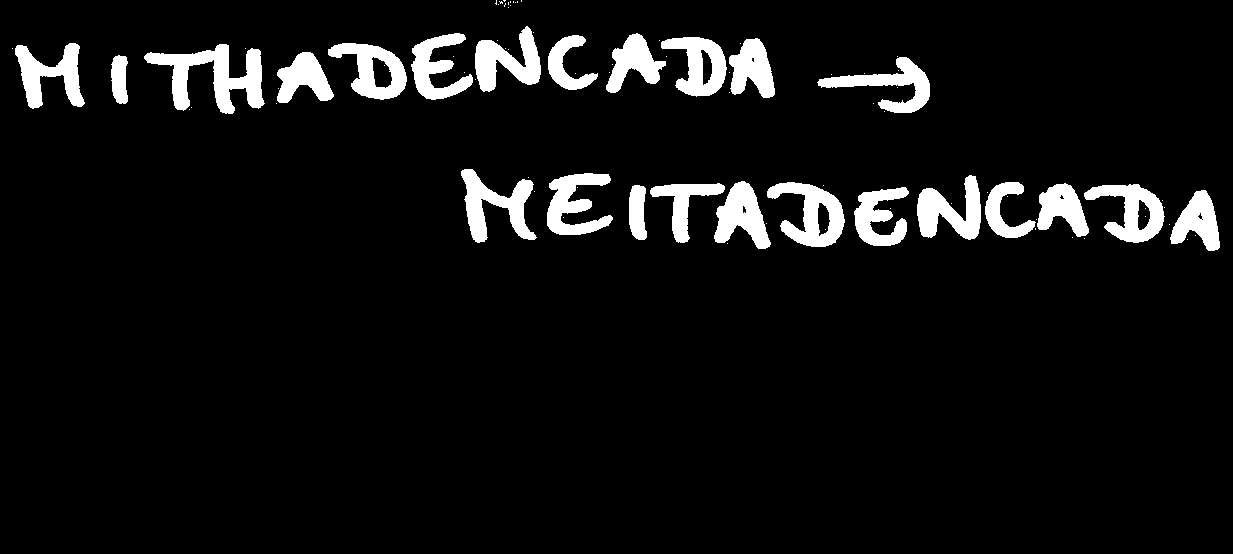 MITHADENCADA →
MEITADENCADA